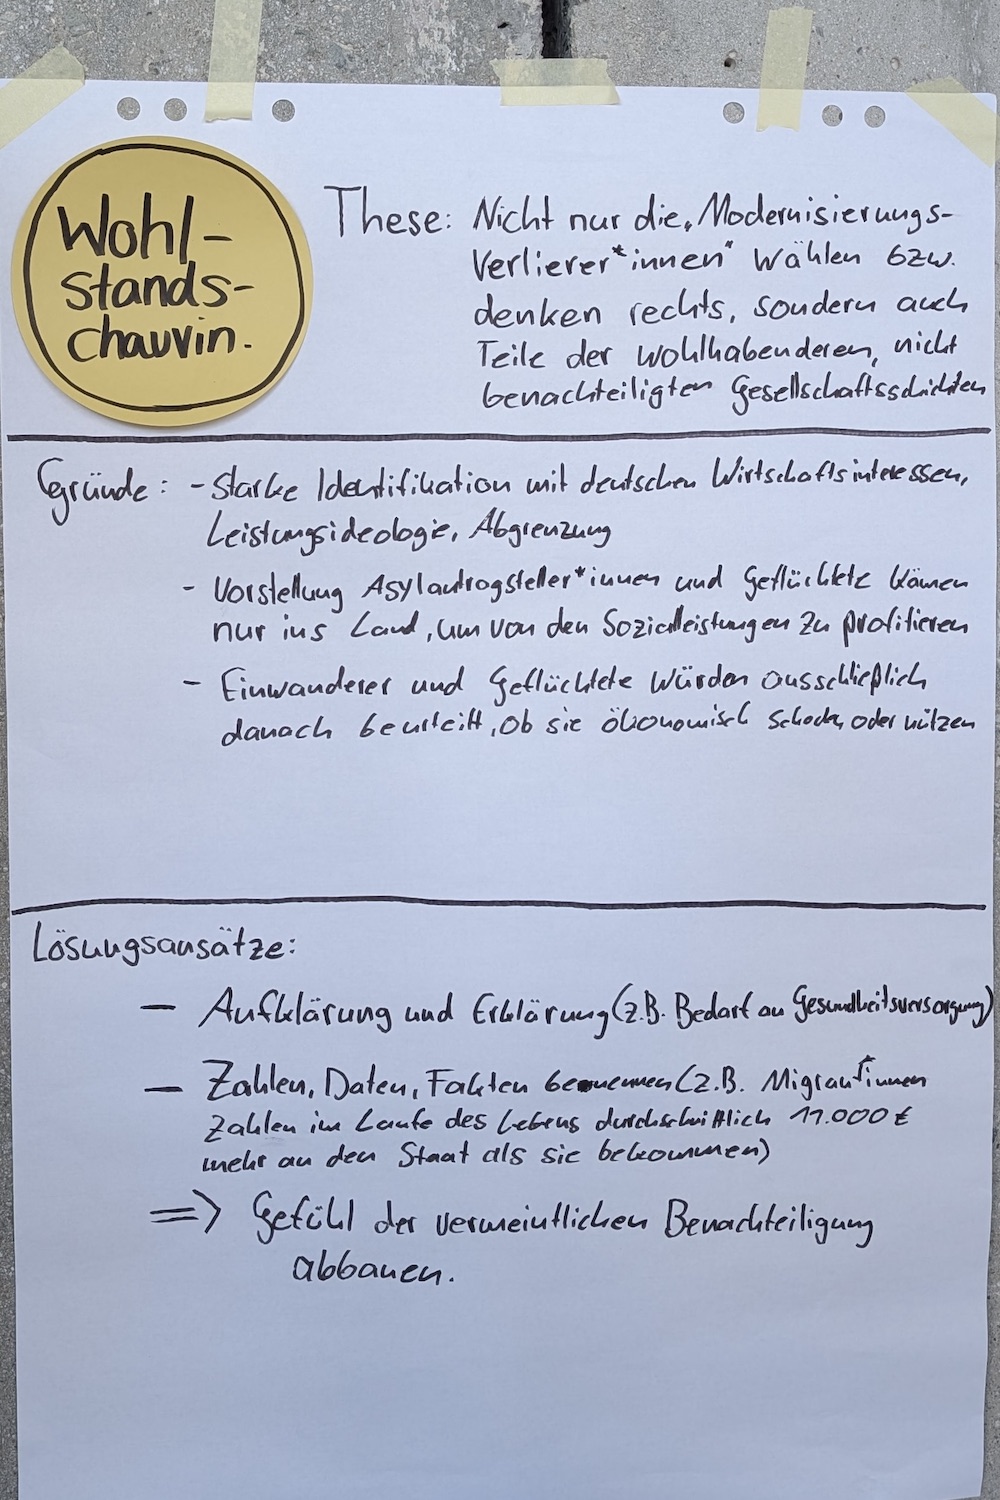 Wohl-
stands-
chauvin.
These: Nicht nur die „Modernisierungs-
verlierer*innen" wählen bzw.
denken rechts, sondern auch
Teile der wohlhabenderen, nicht
benachteiligten Gesellschaftsschichten
Gründe: - Starke Identifikation mit deutschen Wirtschaftsinteressen,
Leistungsideologie, Abgrenzung
- Vorstellung Asylantragsteller*innen und Geflüchtete kämen
nur ins Land, um von den Sozialleistungen zu profitieren
- Einwanderer und Geflüchtete würden ausschließlich
danach beurteilt, ob sie ökonomisch schaden oder nützen
Lösungsansätze:
- Aufklärung und Erklärung (z.B. Bedarf an Gesundheitsversorgung)
- Zahlen, Daten, Fakten benennen (z.B. Migrant*innen
zahlen im Laufe des Lebens durchschnittlich 11.000 €
mehr an den Staat als sie bekommen)
=> Gefühl der vermeintlichen Benachteiligung
abbauen.